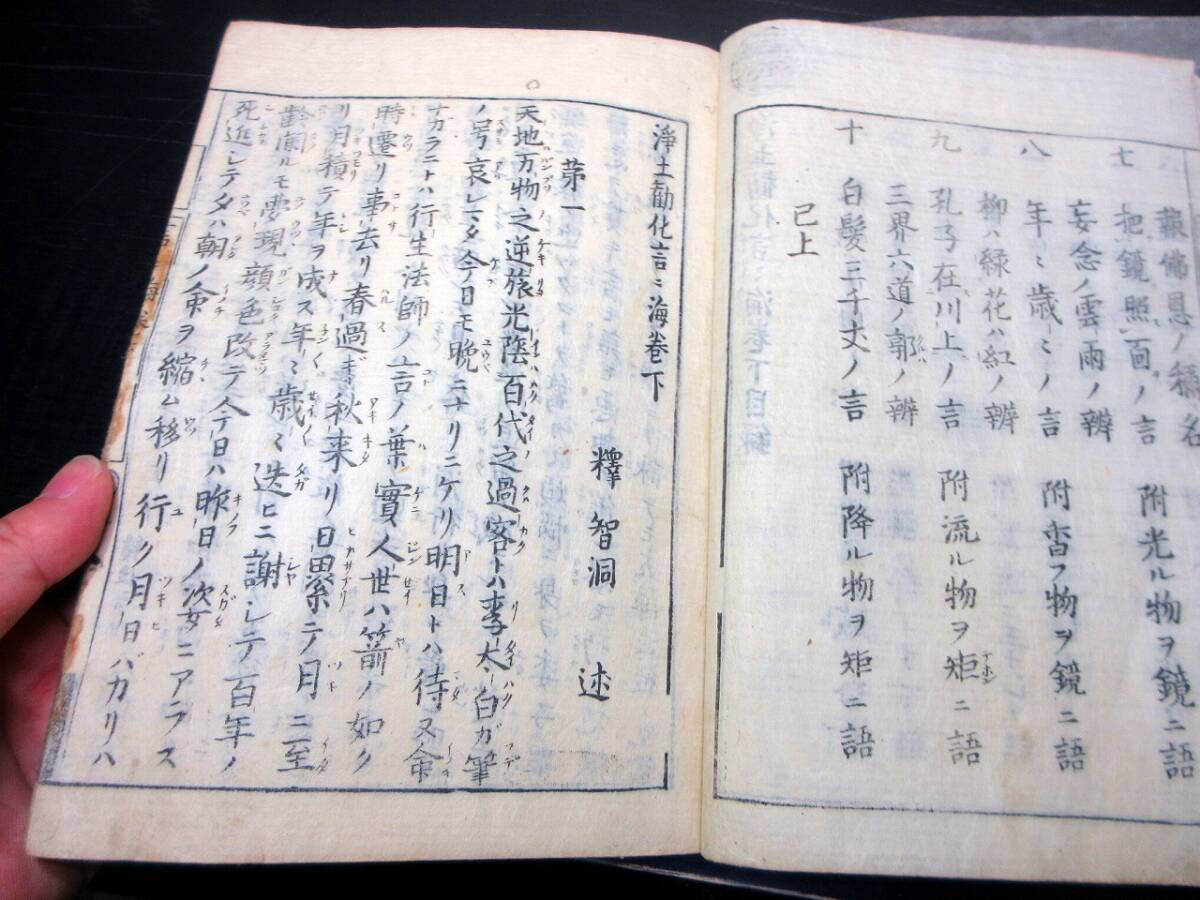 報佛恩ノ稱名
七 把鏡照面ノ言 附光ル物ヲ鏡ニ語
妄念ノ雲雨ノ辨
八 年〻歳〻ノ言 附沓フ物ヲ鏡ニ語
柳ハ緑花ハ紅ノ辨
九 孔子在川上ノ言 附流ル物ヲ矩ニ語
三界六道ノ郭ノ辨
十 白髪三千丈ノ言 附降ル物ヲ矩ニ語
已上
淨土勸化言〻海巻下
釋 智洞 述
苐一
天地万物之逆旅光陰百代之過客トハ李太白ガ筆
ノ号哀レマタ今ノ日モ晩ニナリニケリ明日トハ待又命
ナカラニトハ行生法師ノ言ノ葉實人世ハ箭ノ如ク
時遷リ事去リ春過ギ秋来リ日累テ月ニ至
リ月積テ年ヲ成ス年〻歳〻迭ヒニ謝レテ百年ノ
齢闌ルモ夢現顔色改テ今日ハ昨日ノ姿ニアラス
死進レテタハ朝ノ命ヲ縮ム移リ行ク月日バカリハ